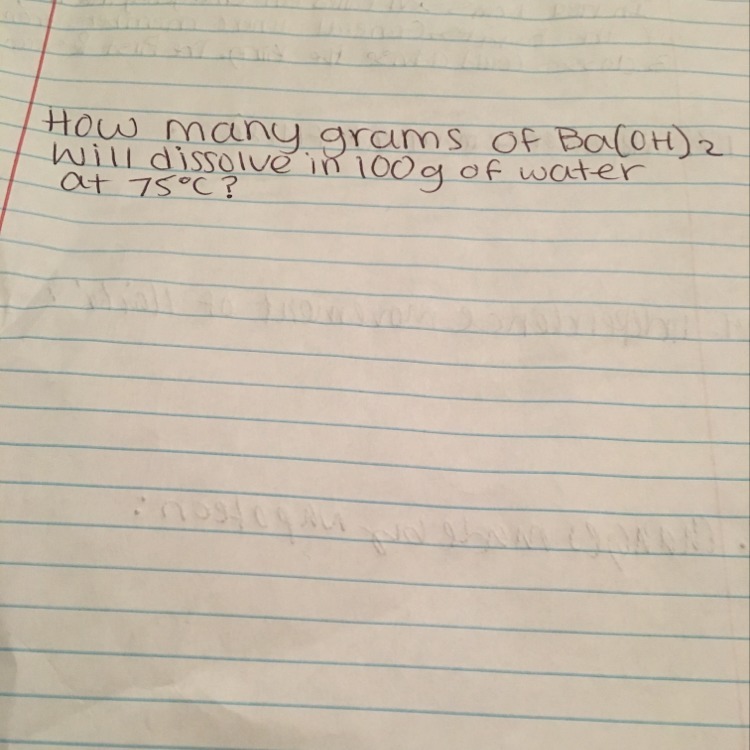 How many grams of Ba(OH)2
will dissolve in 100g of water
at 75°C?